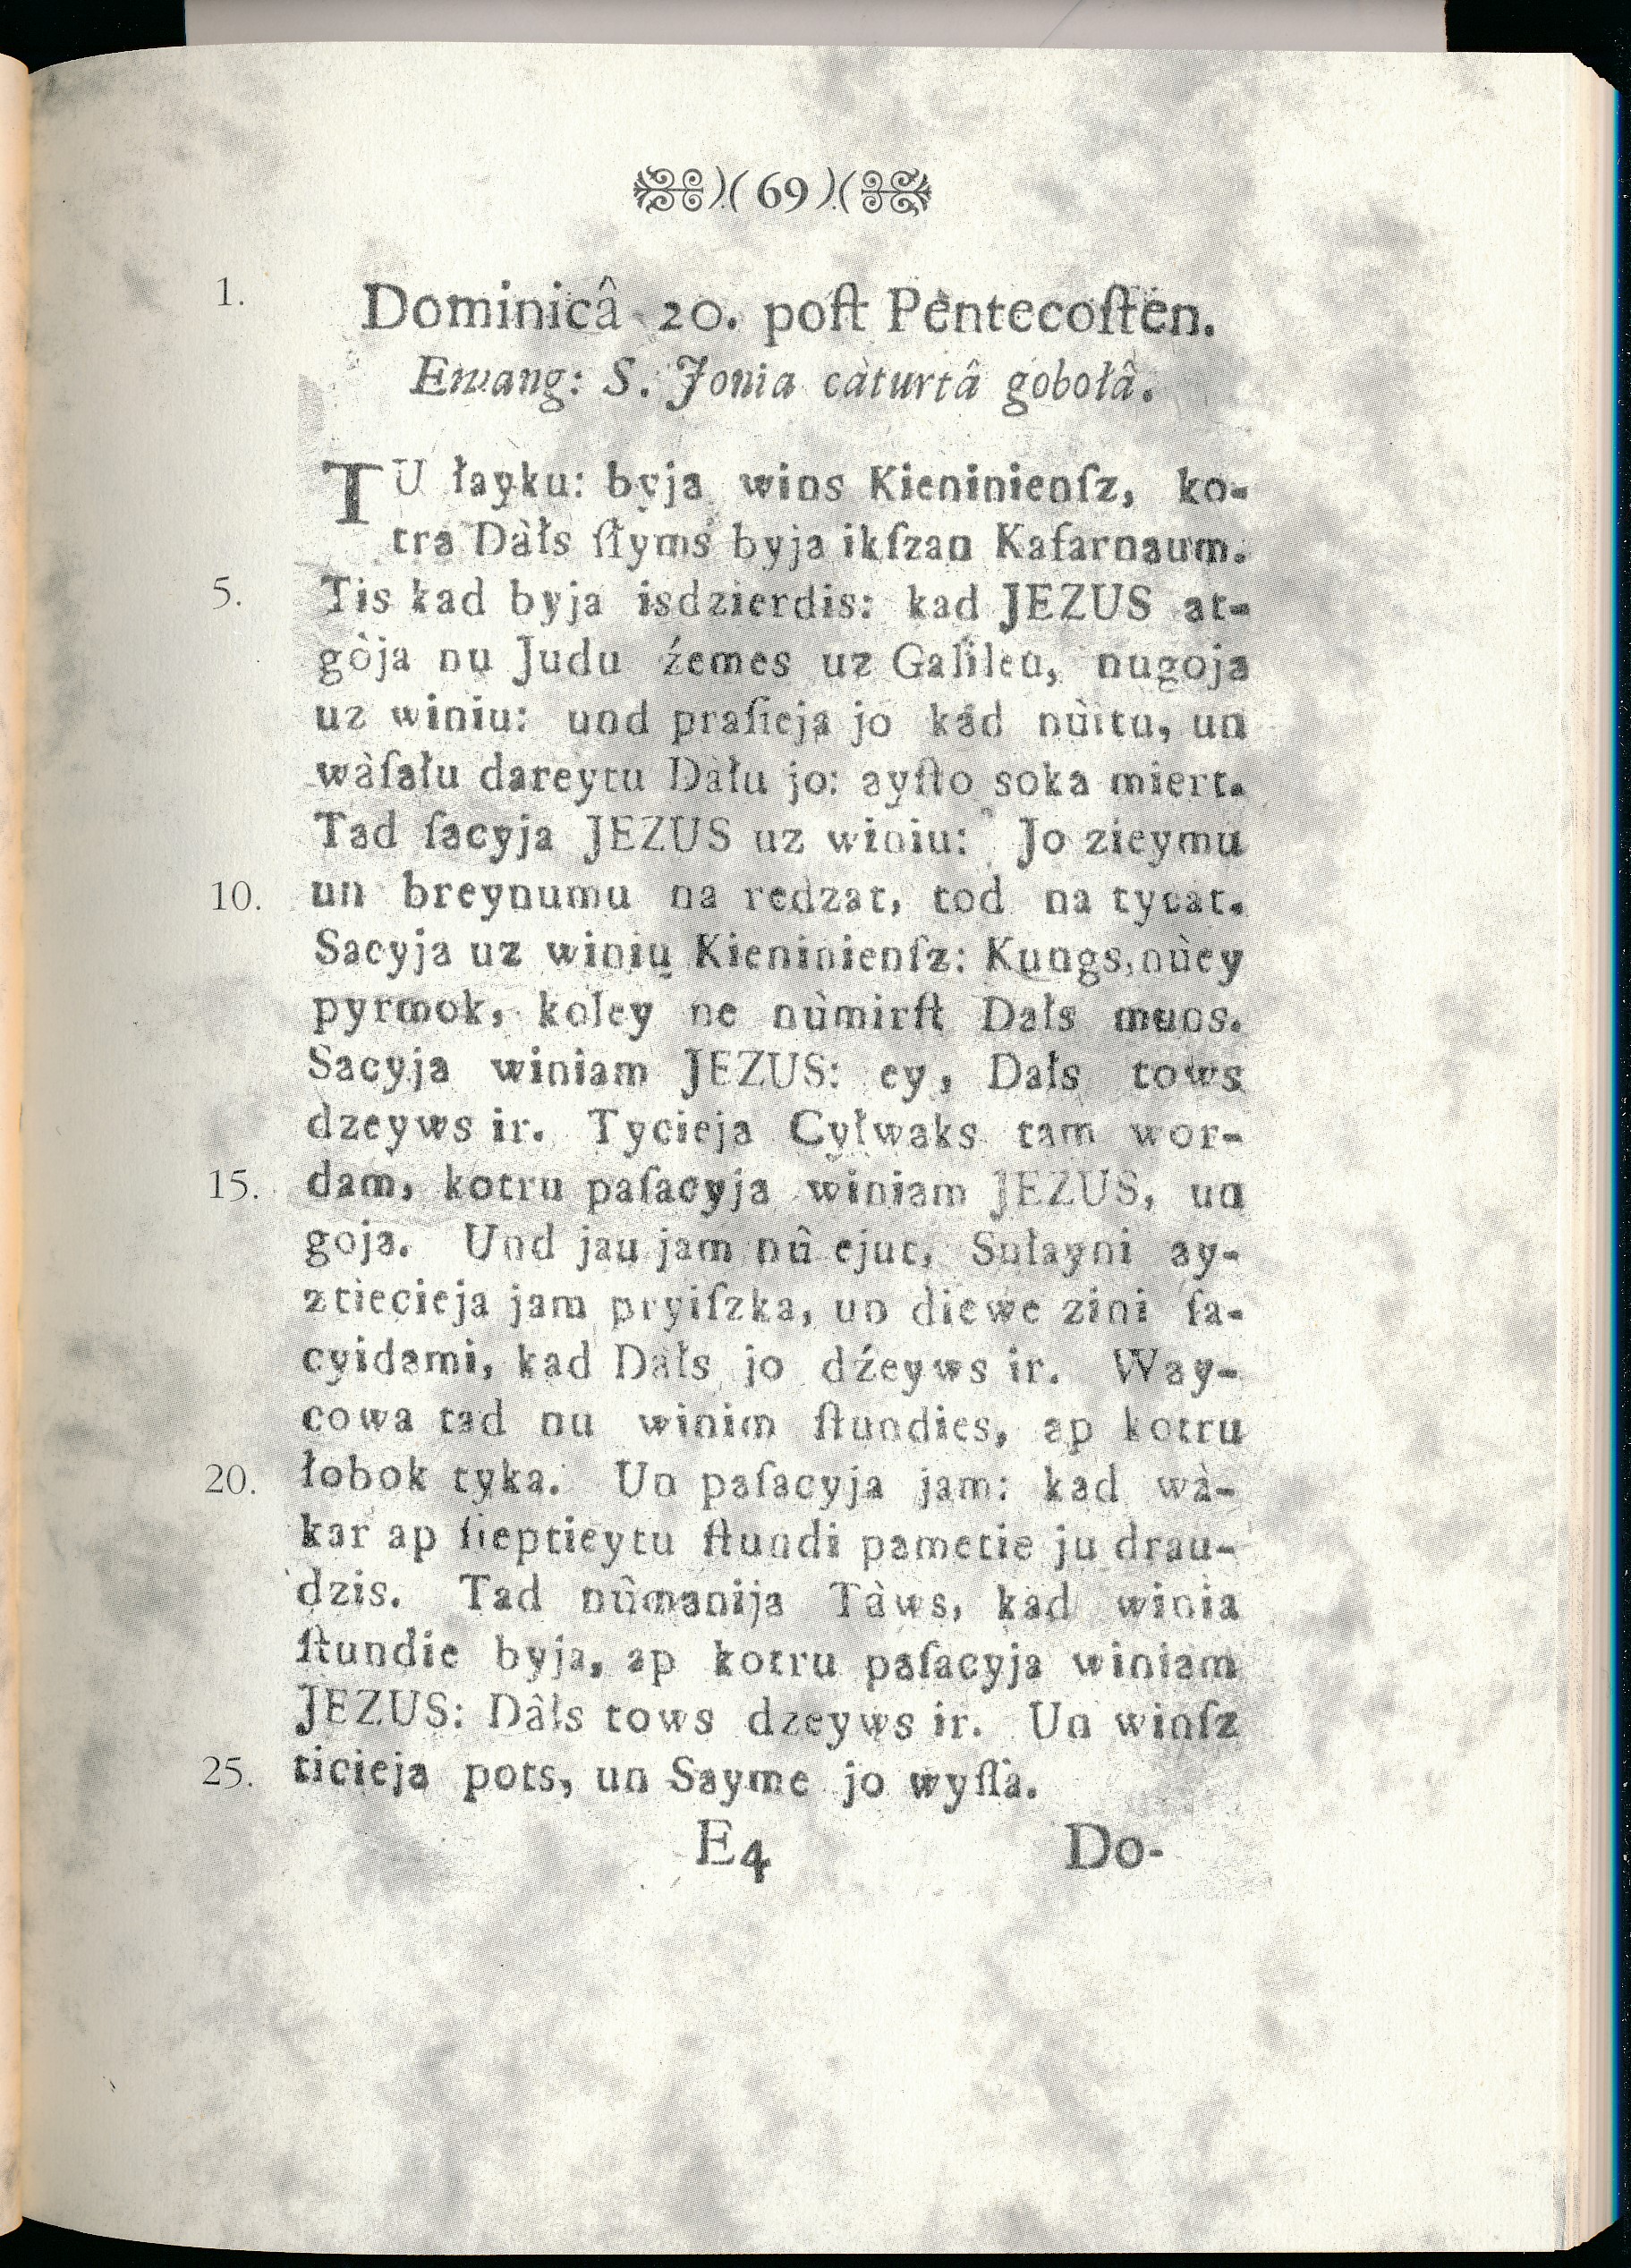 ).( 69 ).(
1.
Dominicâ 20. poſt Pèntecoſtèn.
Ewang: S. Jonia càturtâ gobołâ.
TU łayku: byja wins Kieninienſz, ko-
tra Dàłs ſłyms byja ikſzan Kafarnaum.
5. Tis kad byja isdzierdis: kad JEZUS at-
gòja nu Judu źemes uz Galileu, nugoja
uz winiu: und praſieja jo kad nùitu, un
wàſału dareytu Dàłu jo: ayſto soka miert.
Tad ſacyja JEZUS uz winiu: Jo zieymu
10. un breynumu na redzat, tod na tycat.
Sacyja uz winiu Kieninienſz: Kungs, nùey
pyrmok, koley ne nùmirſt Dałs muns.
Sacyja winiam JEZUS: ey, Dałs tows
dzeyws ir. Tycieja Cyłwaks tam wor-
15. dam, kotru paſacyja winiam JEZUS, un
goja. Und jau jam nû ejut, Sułayni ay-
ztiecieja jam pryiſzka, un diewe zini ſa-
cyidami, kad Dałs jo dźeyws ir. Way-
cowa tad nu winim ſtundies, ap kotru
20. łobok tyka. Un paſacyja jam: kad wà-
kar ap ſieptieytu ſtundi pametie ju drau-
dzis. Tad nûmanija Tàws, kad winia
ſtundie byja, ap kotru paſacyja winiam
JEZUS: Dâłs tows dzeyws ir. Un winſz
25. ticieja pots, un Sayme jo wyſſà.
E4 Do-